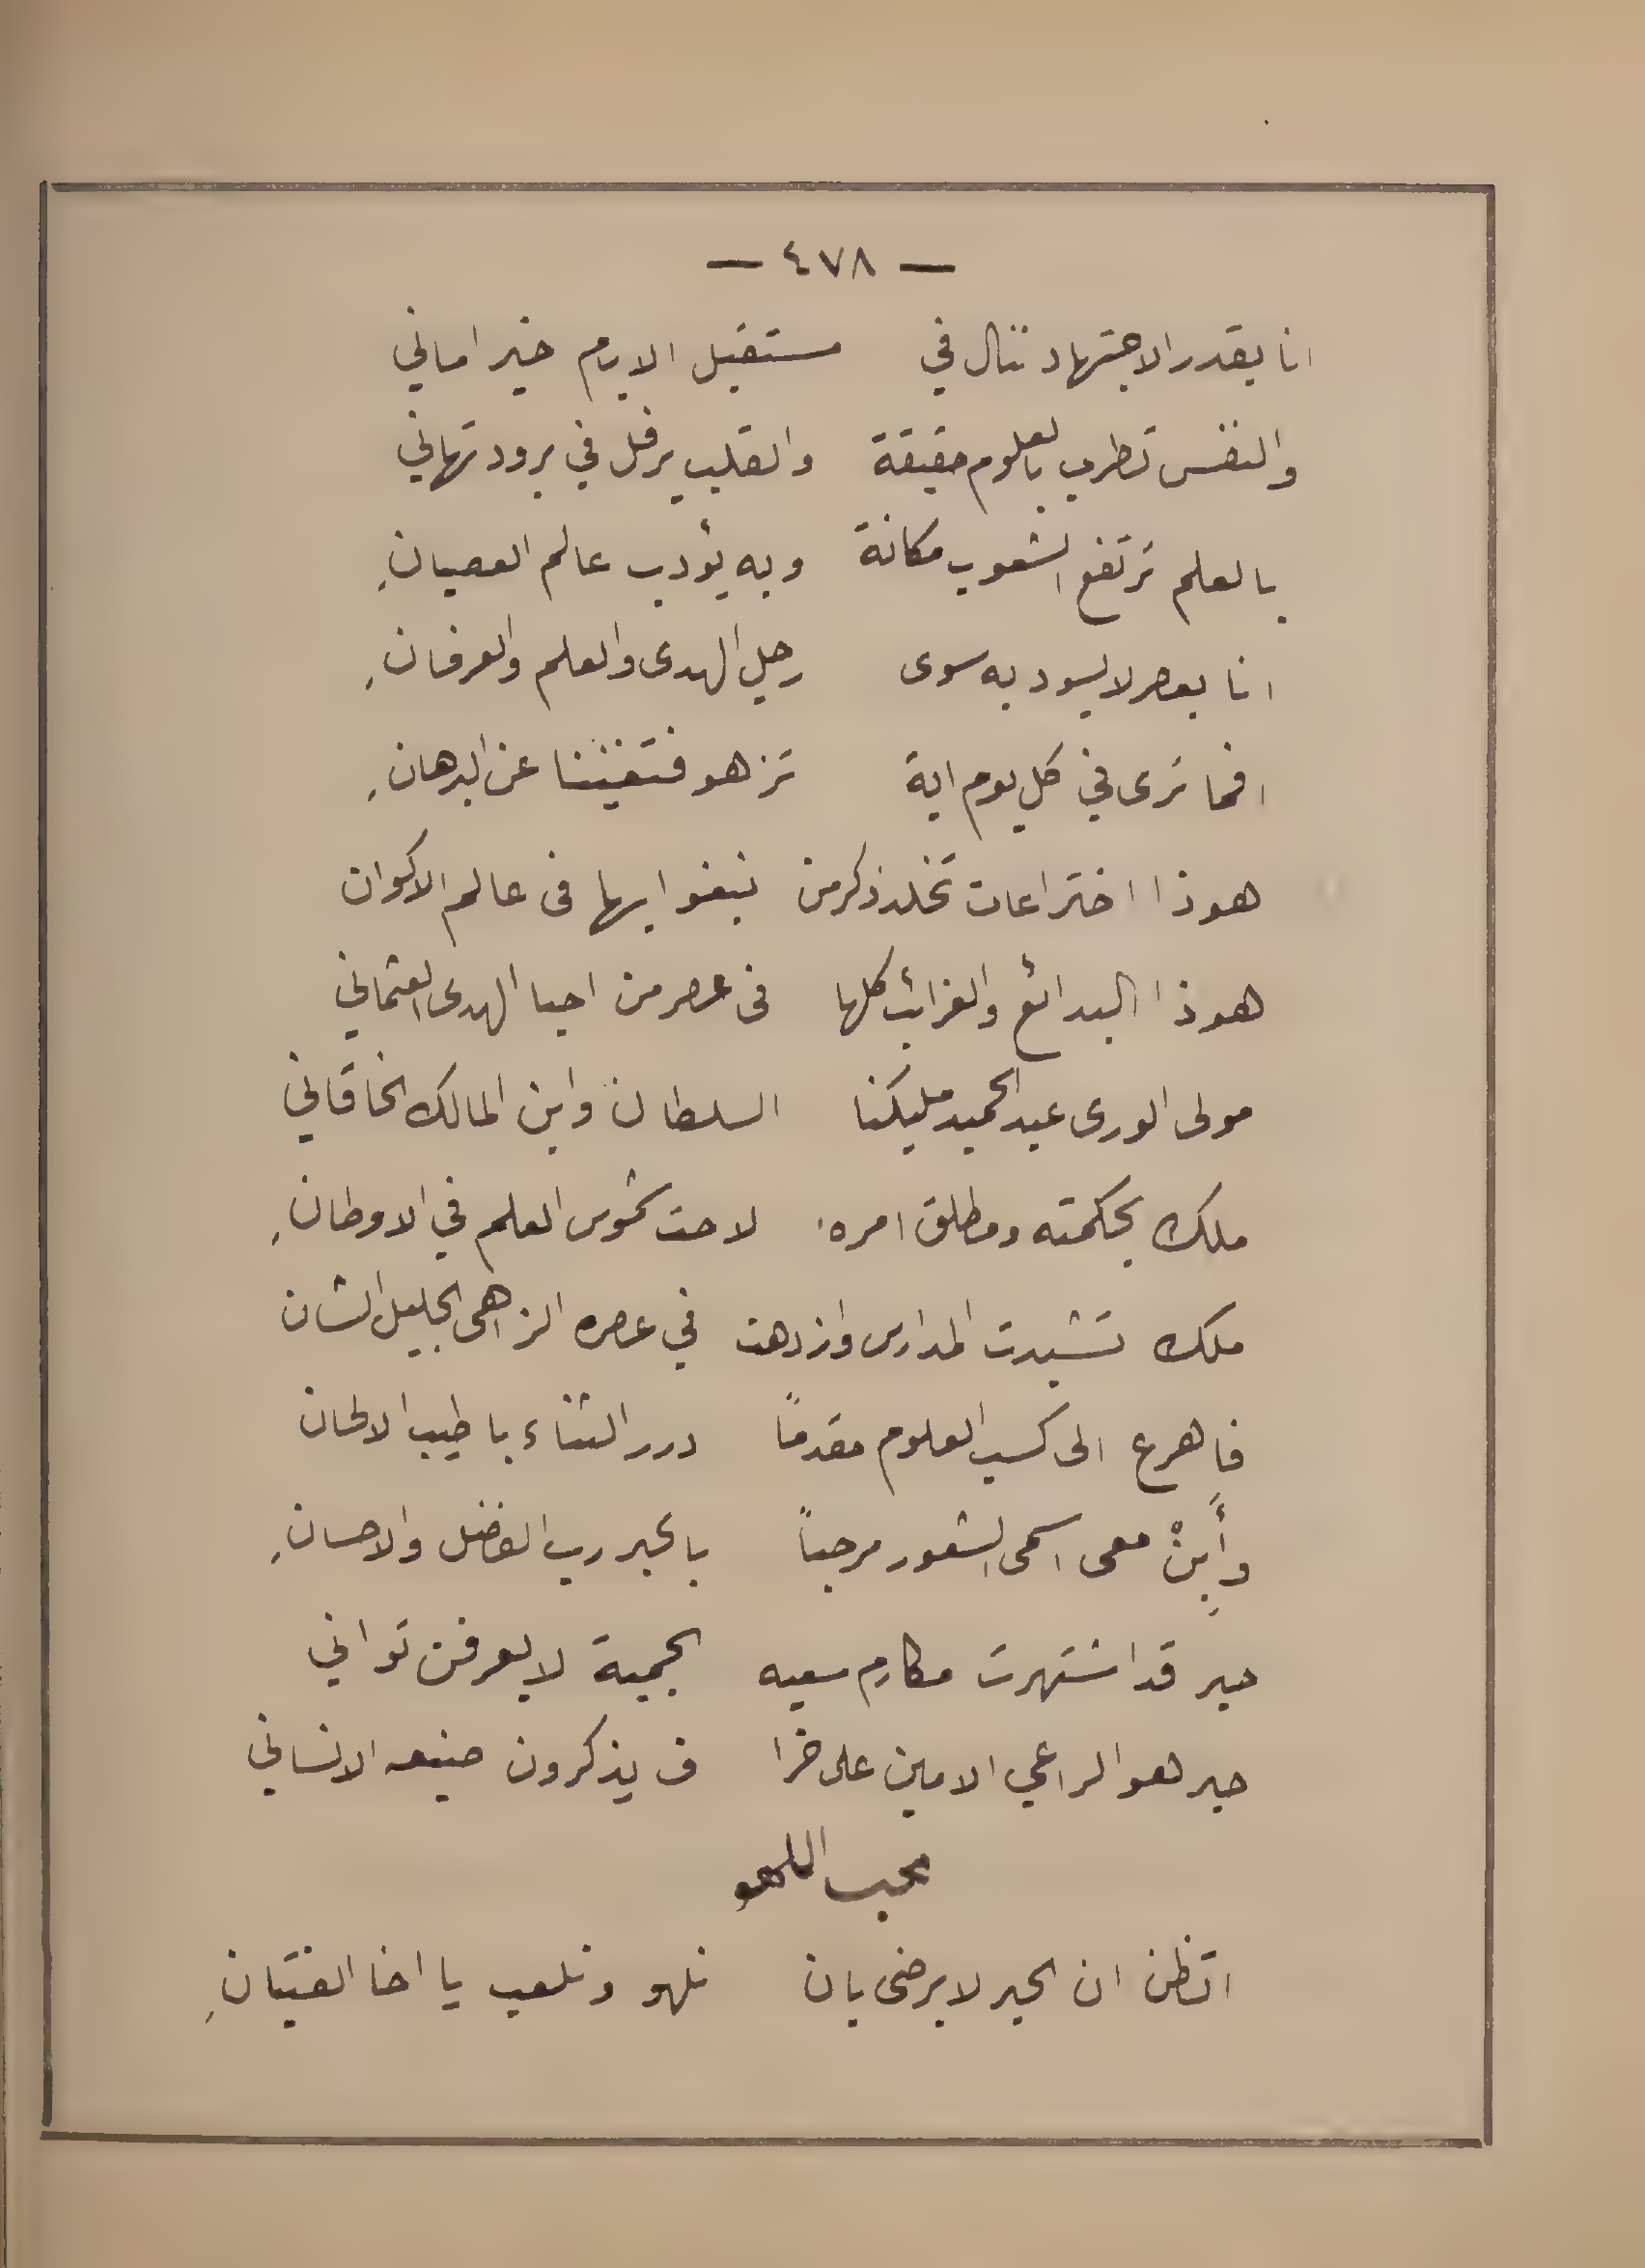 — ٤٧٨ —
انا بقدر الاجتهاد ننال في مستقبل الايام خير اماني
والنفس تطرب بالعلوم حقيقة والقلب يرفل في برود تهاني
بالعلم ترتفع الشعوب مكانة وبه يؤدب عالم العصيانِ
انا بعصر لا يسود به سوى رجل الهدى والعلم والعرفانِ
افما نرى في كل يوم اية تزهو فتغنينا عن البرهانِ
هوذا اختراعات تخلد ذكر من نبغوا بها فى عالم الاكوان
هوذا البدائع والغرائب كلها فى عصر من احيا الهدى العثماني
مولى الورى عبد الحميد مليكنا السلطان وابن المالك الخاقاني
ملك بحكمته ومطلق امره لاحت شموس العلم في الاوطانِ
ملك تشيدت المدارس وازدهت في عصره الزاهى الجليل الشان
فاهرع الى كسب العلوم مقدمًا درر الثناء باطيب الالحان
وأَبِنْ معى اسمى الشعور مرحباً بالحبر رب الفضل والاحسانِ
حبر قد اشتهرت مكارم سعيه بحمية لا يعرفن تواني
حبر هو الراعي الامين على خرا ف يذكرون صنيعه الانساني
محب اللهو
اتظن ان الحبر لا يرضى بان نلهو ونلعب يا اخا الفتيانِ